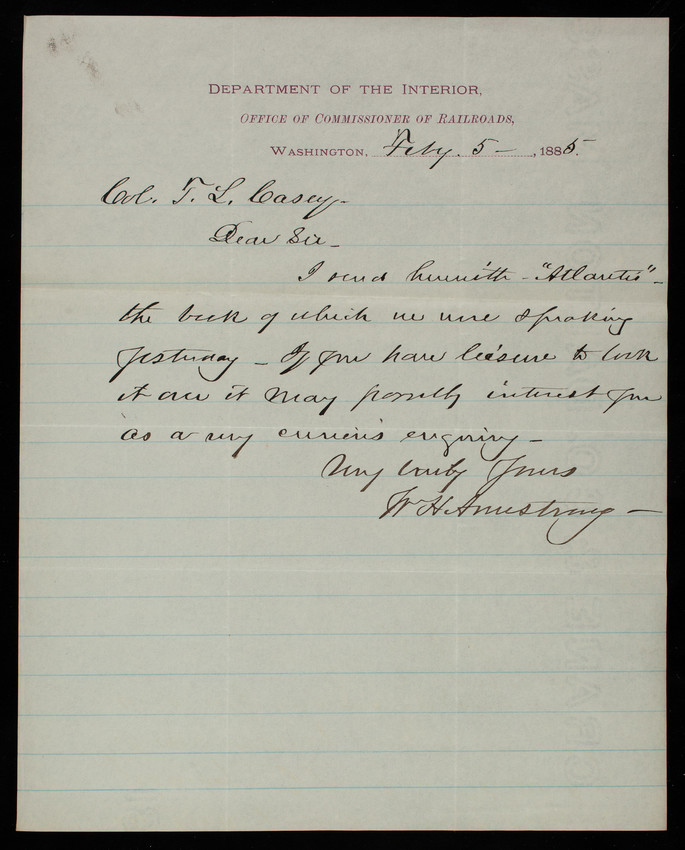 DEPARTMENT OF THE INTERIOR,
OFFICE OF COMMISSIONER OF RAILROADS,
WASHINGTON, Feby. 5 - , 1885.
Col. T. L. Casey -
Dear Sir -
I send herewith - "Atlantis" -
the book of which we were speaking
yesterday - If you have leisure to look
it over it may possibly interest you
as a very curious enquiry -
Very truly Yours
W H Armstrong -